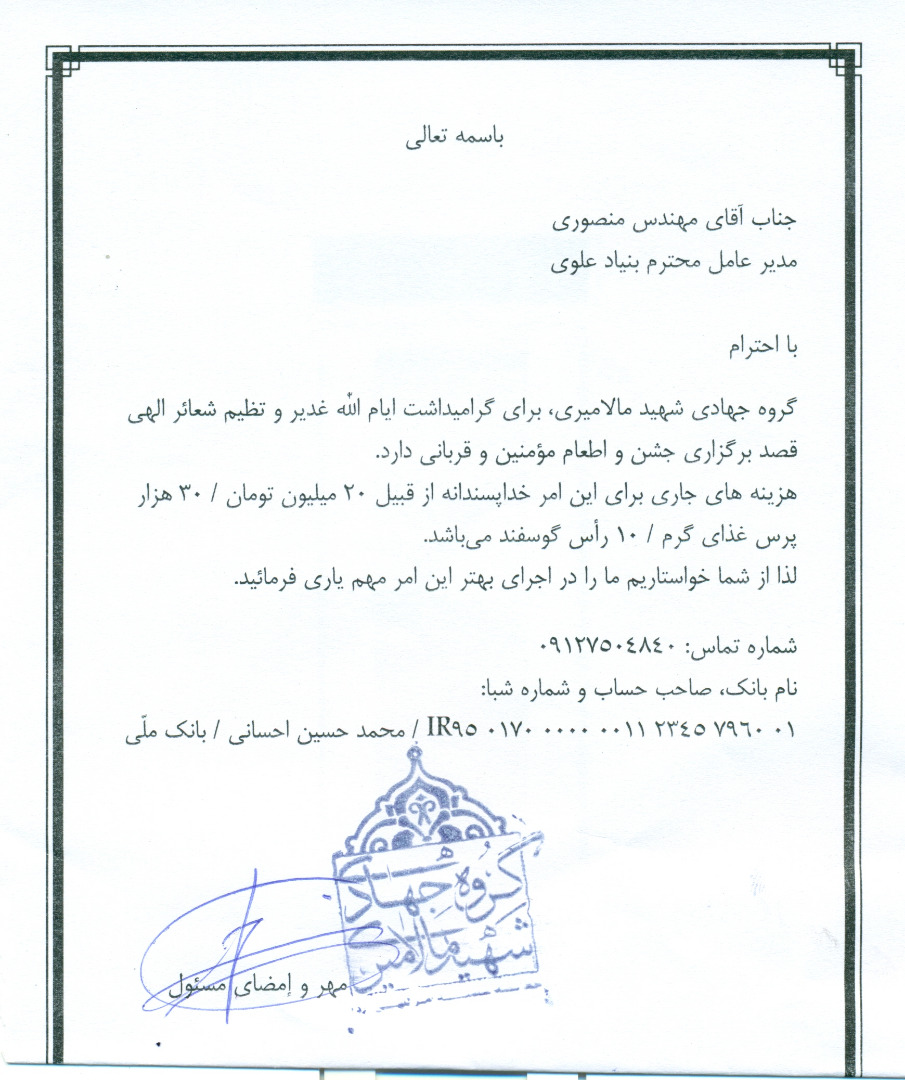 باسمه تعالی
جناب آقای مهندس منصوری
مدیر عامل محترم بنیاد علوی
با احترام
گروه جهادی شهید مالامیری، برای گرامیداشت ایام الله غدیر و تظیم شعائر الهی
قصد برگزاری جشن و اطعام مؤمنین و قربانی دارد.
هزینه های جاری برای این امر خداپسندانه از قبیل ۲۰ میلیون تومان / ۳۰ هزار
پرس غذای گرم / ۱۰ رأس گوسفند می‌باشد.
لذا از شما خواستاریم ما را در اجرای بهتر این امر مهم یاری فرمائید.
شماره تماس: ٠٩١٢٧٥٠٤٨٤٠
نام بانک، صاحب حساب و شماره شبا:
IR٩٥ ٠١٧٠ ٠٠٠٠ ٠٠١١ ٢٣٤٥ ٧٩٦٠ ٠١ / محمد حسین احسانی / بانک ملّی
گروه جهادی
شهید مالامیری
مهر و إمضای مسئول